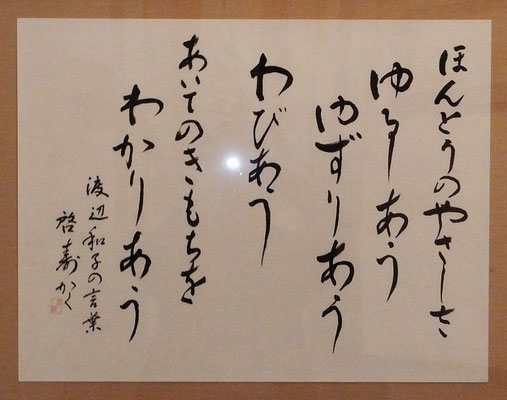 ほんとうのやさしさ
ゆるしあう
ゆずりあう
わびあう
あいてのきもちを
わかりあう
渡辺和子の言葉
啓寿かく